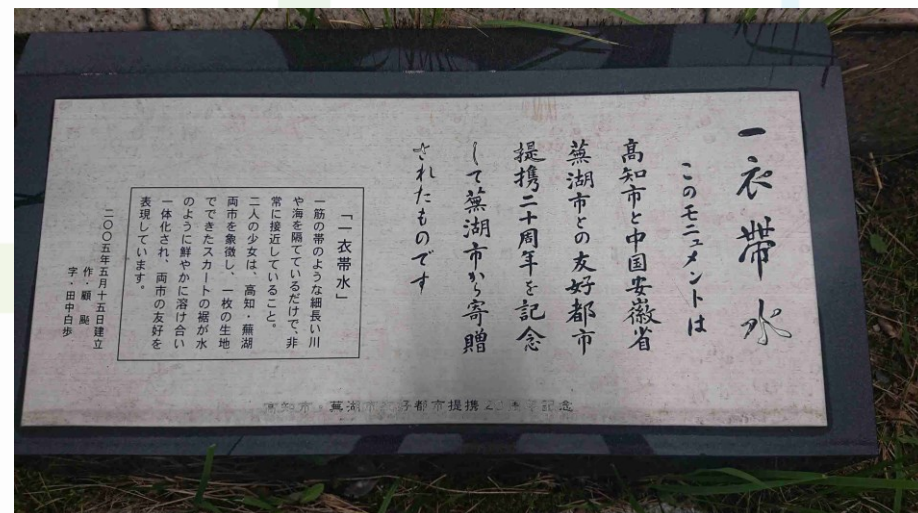 一衣帯水
このモニュメントは
高知市と中国安徽省
蕪湖市との友好都市
提携二十周年を記念
して蕪湖市から寄贈
されたものです
「一衣帯水」
一筋の帯のような細長い川
や海を隔てているだけで、非
常に接近していること。
二人の少女は、高知・蕪湖
両市を象徴し、一枚の生地
でできたスカートの裾が水
のように鮮やかに溶け合い
一体化され、両市の友好を
表現しています。
二〇〇五年五月十五日建立
作・顧
字・田中白歩
高知市 蕪湖市 好都市提携２ 周年記念